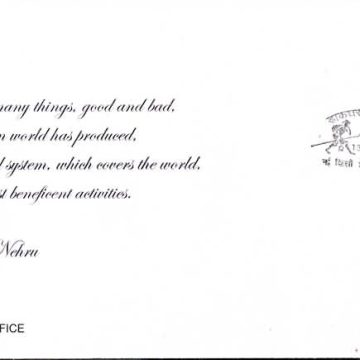 many things, good and bad,
n world has produced,
l system, which covers the world,
st beneficent activities.
Nehru
FICE
डाकघर